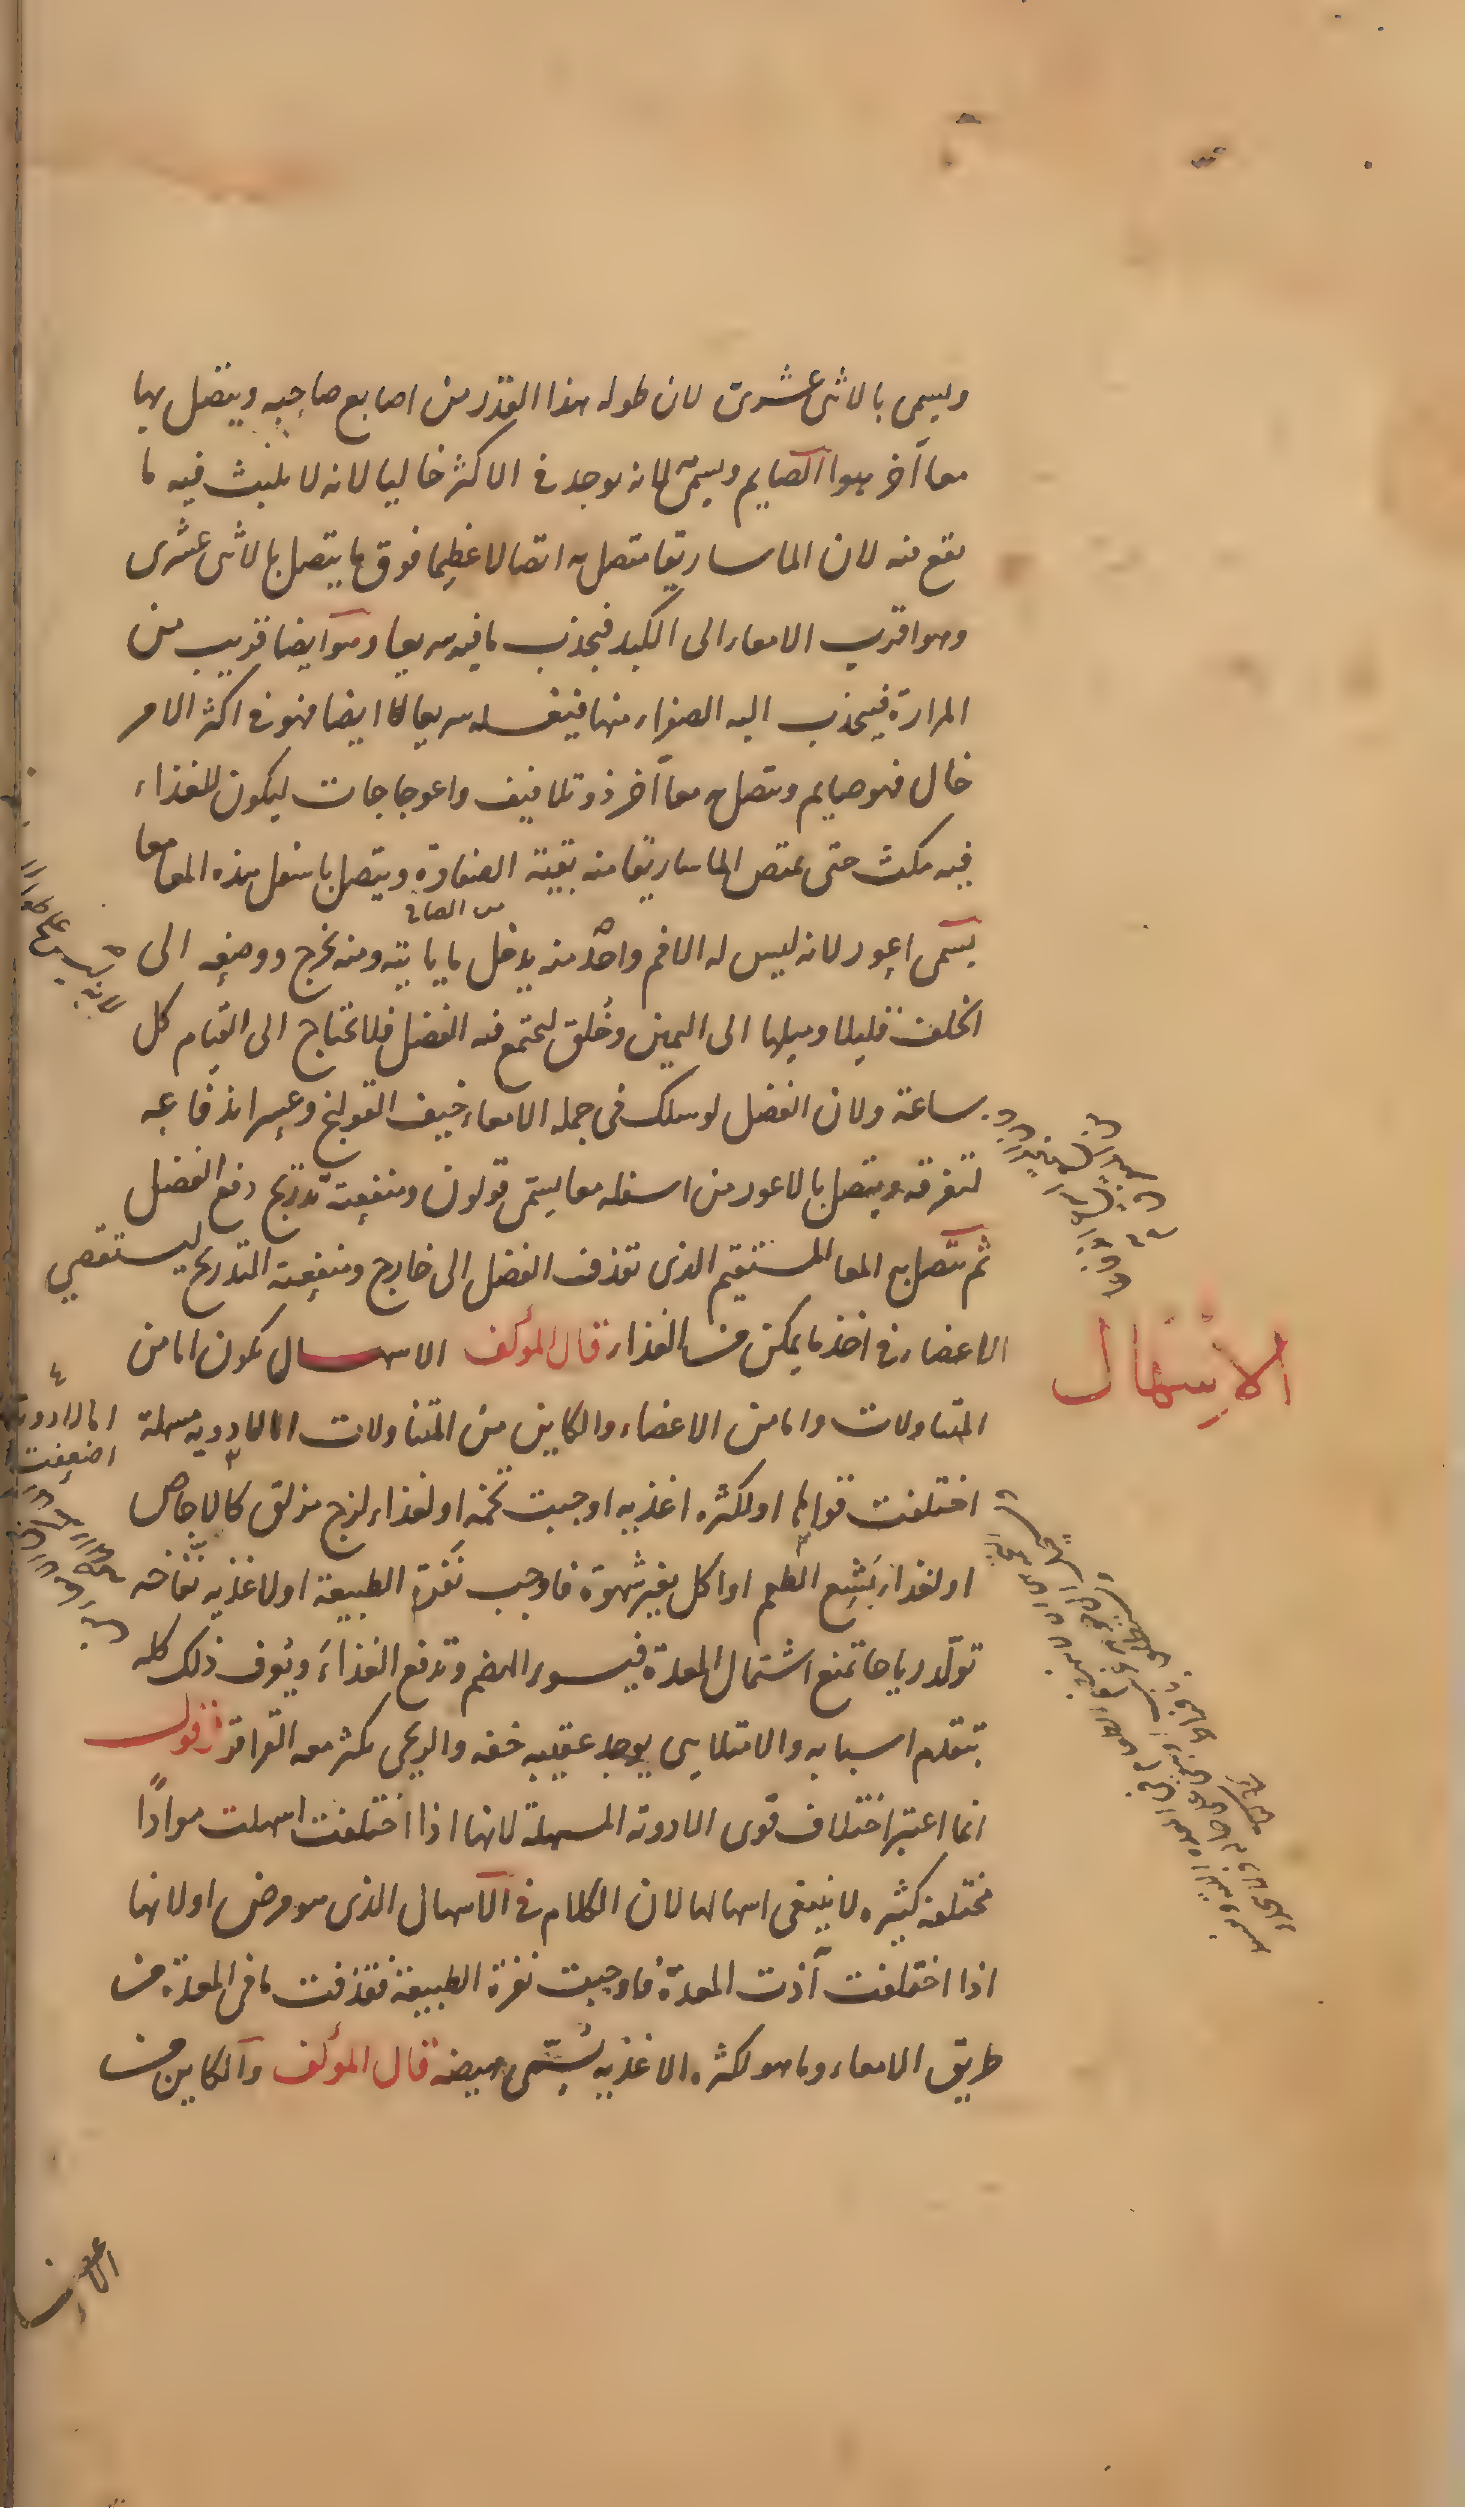 ويسمى بالاثنى عشرى لان طوله هذا القدر من اصابع صاحبه ويتصل بها
معا آخر هو الصايم ويسمى لانه يوجد فى الاكثر خاليا لانه لا يلبث فيه ما
يقع منه لان الماساريقا متصل به اتصالا عظيما فوق ما يتصل بالاثنى عشرى
وهو اقرب الامعاء الى الكبد فيجذب ما فيه سريعا وهو ايضا قريب من
المرارة فينجذب اليه الصفراء منها فيغسله سريعا ايضا فهو فى اكثر الامر
خال فهو صايم ويتصل به معا آخر ذو تلافيف واعوجاجات ليكون للغذاء
فيه مكث حتى يمتص الماساريقا منه بقية الصفاوة ويتصل باسفل هذه المعا معا
يسمى اعور لانه ليس له الا فم واحد منه يدخل ما ياتيه ومنه يخرج ووضعه الى
الخلف قليلا وميلها الى اليمين وخلق ليجتمع فيه الفضل فلا يحتاج الى القيام كل
ساعة ولان الفضل لو سلك فى جملة الامعاء خيف القولنج وعسر اندفاعه
لتفرقه ويتصل بالاعور من اسفله معا يسمى قولون ومنفعته تدريج دفع الفضل
ثم يتصل به المعا المستقيم الذى تقذف الفضل الى خارج ومنفعة التدريج ليستقصي
الاعضاء فى اخذ ما يمكن من الغذاء قال المؤلف الاسهال يكون اما من
الاسهال
المتناولات واما من الاعضاء والكاين من المتناولات اما لادويه مسهلة
اختلفت قواها او لكثره اغذيه اوجبت تخمه او لغذاء لزج مزلق كالاجاص
او لغذاء بشع الطعم او اكل بغير شهوة فاوجب نفرة الطبيعة او لاغذيه نفاخه
تولد رياحا تمنع اشتمال المعدة فيسوء الهضم وتدفع الغذاء ويعرف ذلك كله
بتقدم اسبابه والامتلايى يوجد عقيبه خفه والريحى يكثر معه القراقر اقول
انما اعتبر اختلاف قوى الادوية المسهلة لانها اذا اختلفت اسهلت موادا
مختلفه كثيره لا ينبغى اسهالها لان الكلام فى الاسهال الذى هو مرض او لانها
اذا اختلفت آذت المعدة فاوجبت نفرة الطبيعة فقذفت ما فى المعدة من
طريق الامعاء وما هو لكثره الاغذيه يسمى هيضه قال المؤلف والكاين من